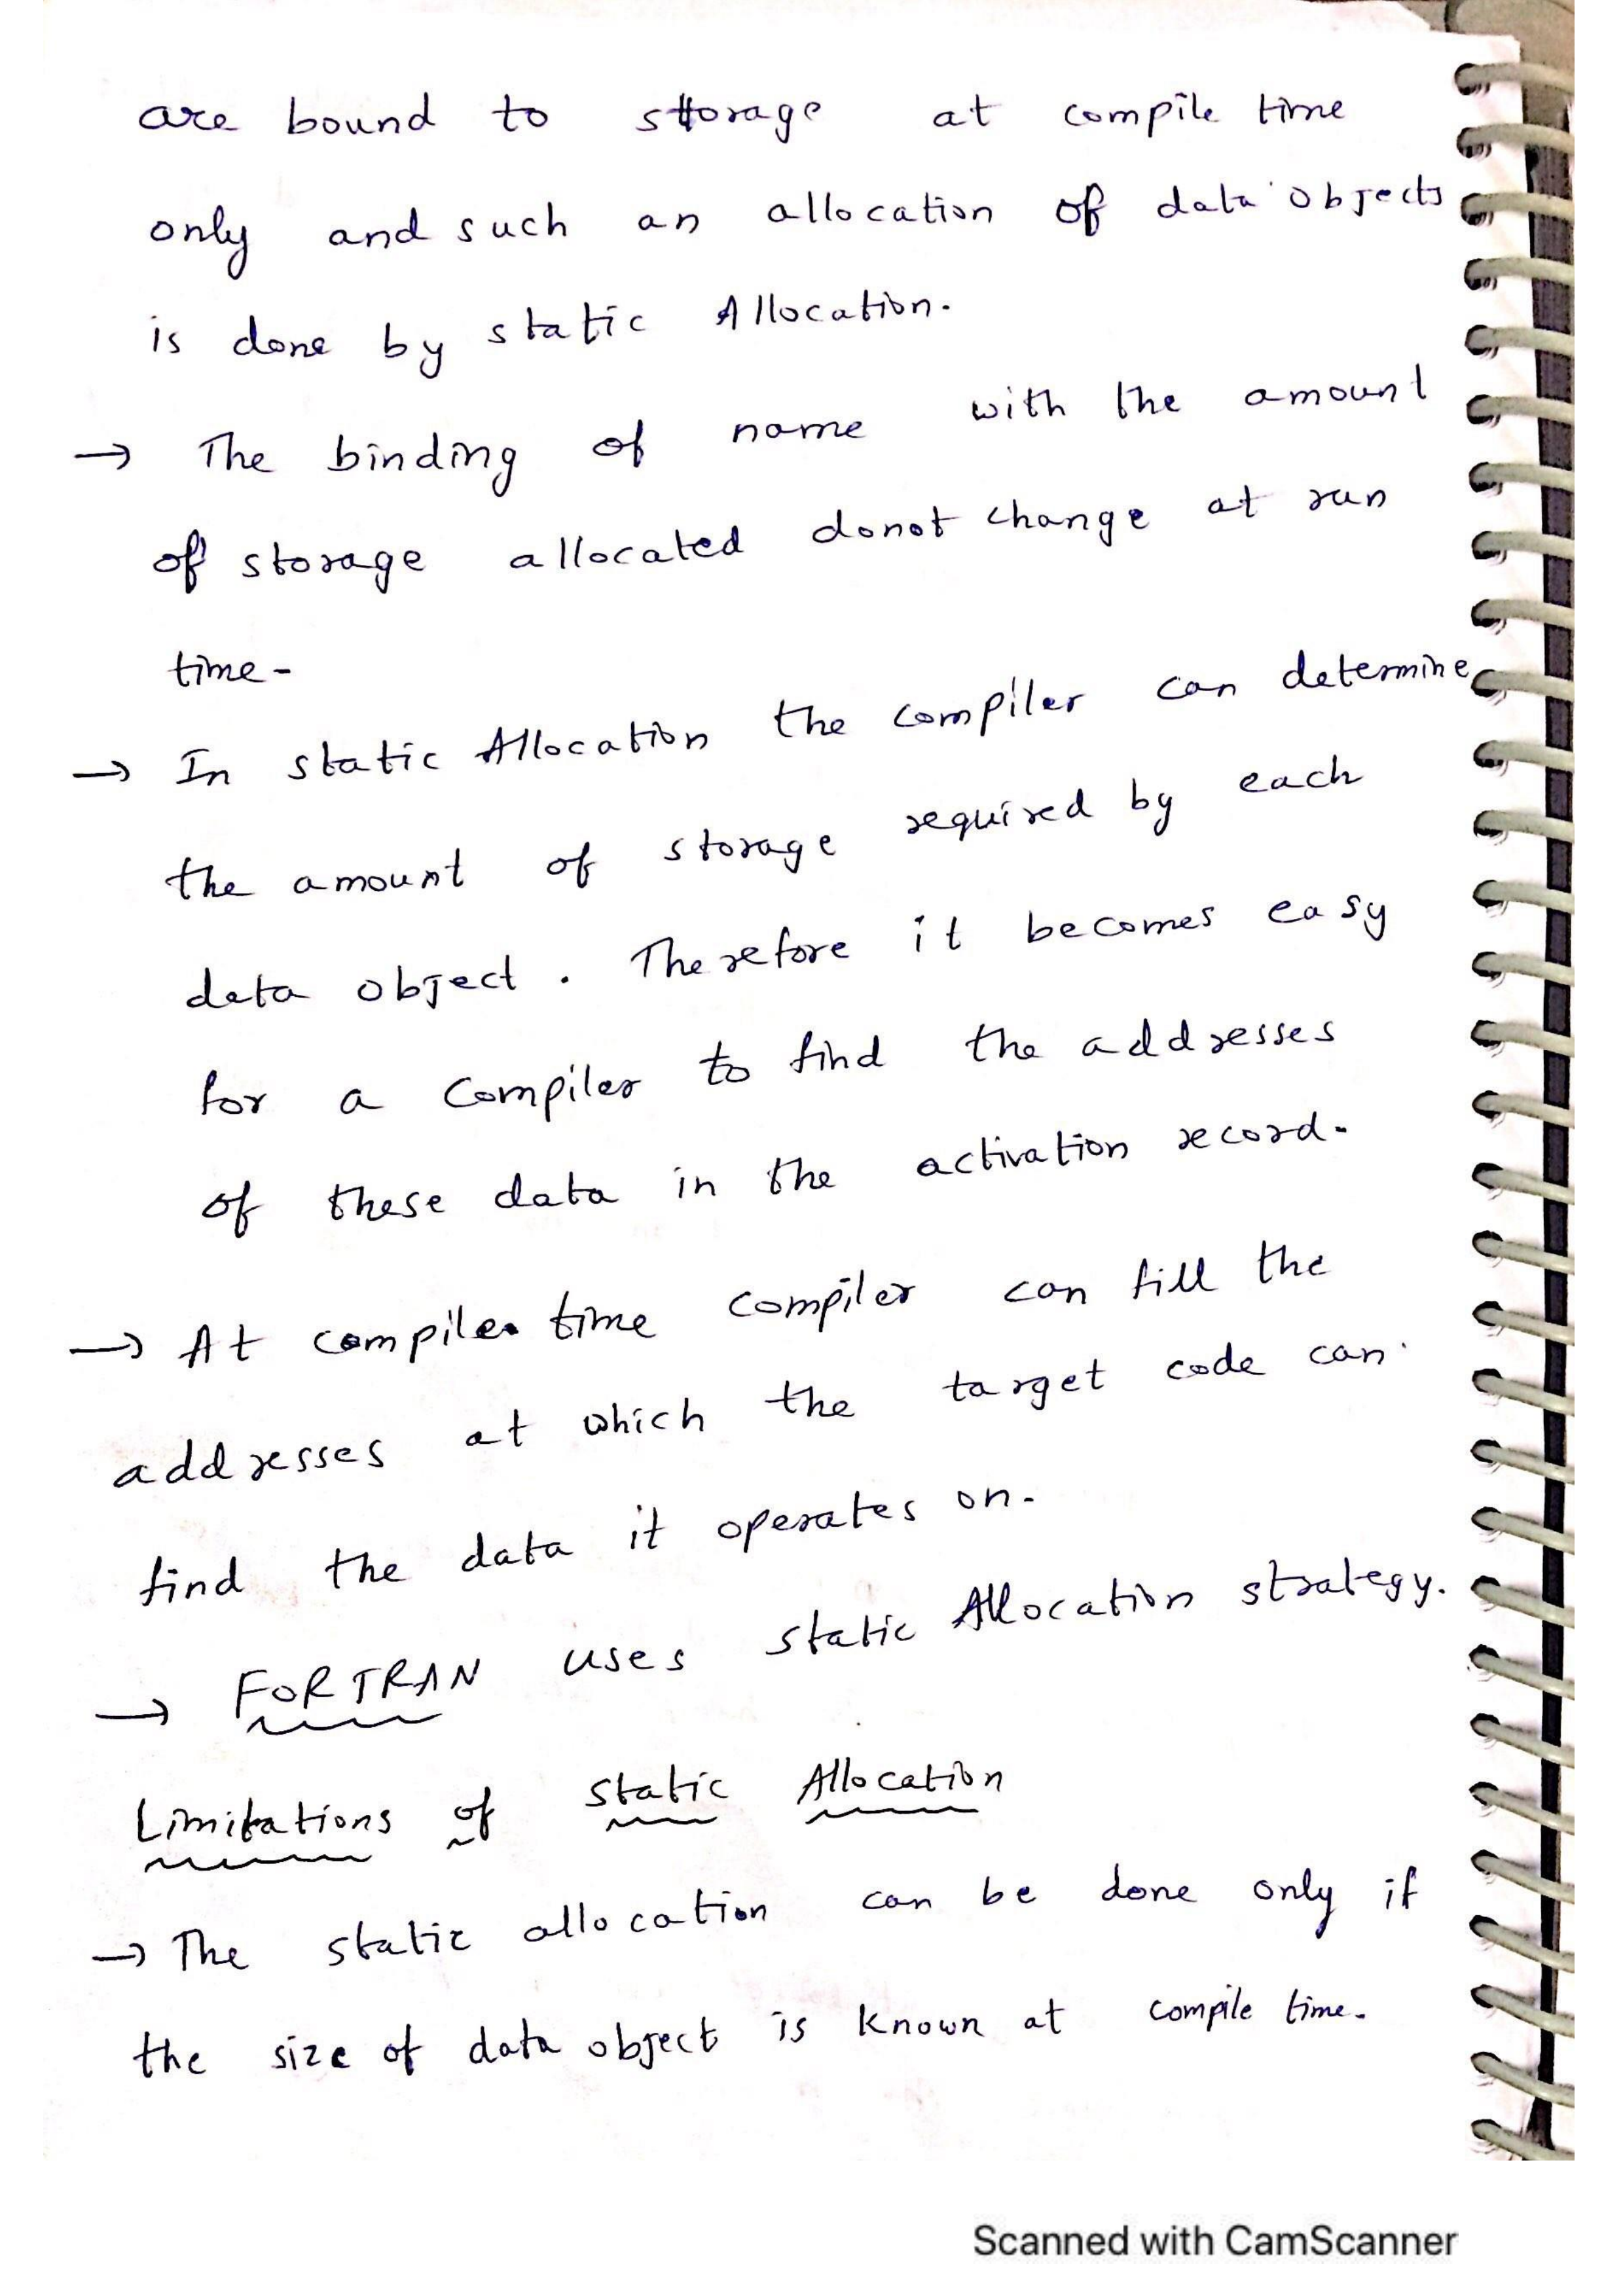 are bound to storage at compile time
only and such an allocation of data objects
is done by static Allocation.
→ The binding of name with the amount
of storage allocated donot change at run
time-
→ In static Allocation the compiler can determine
the amount of storage required by each
data object. Therefore it becomes easy
for a Compiler to find the addresses
of these data in the activation record.
→ At compile time compiler can fill the
addresses at which the target code can
find the data it operates on.
→ FORTRAN uses static Allocation strategy.
Limitations of static Allocation
→ The static allocation can be done only if
the size of data object is known at compile time.
Scanned with CamScanner